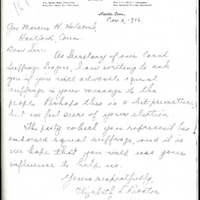 Nov. 8, 1916
Gov. Marcus H. Holcomb,
Hartford, Conn.
Dear Sir:-
As Secretary of our local
Suffrage League, I am writing to ask
you if you will advocate equal
suffrage in your message to the
people. Perhaps this is a bit premature,
but we feel sure of your election.
The party which you represent has
endorsed equal suffrage, and it is
our hope that you will use your
influence to help us.
Yours respectfully,
Elizabeth